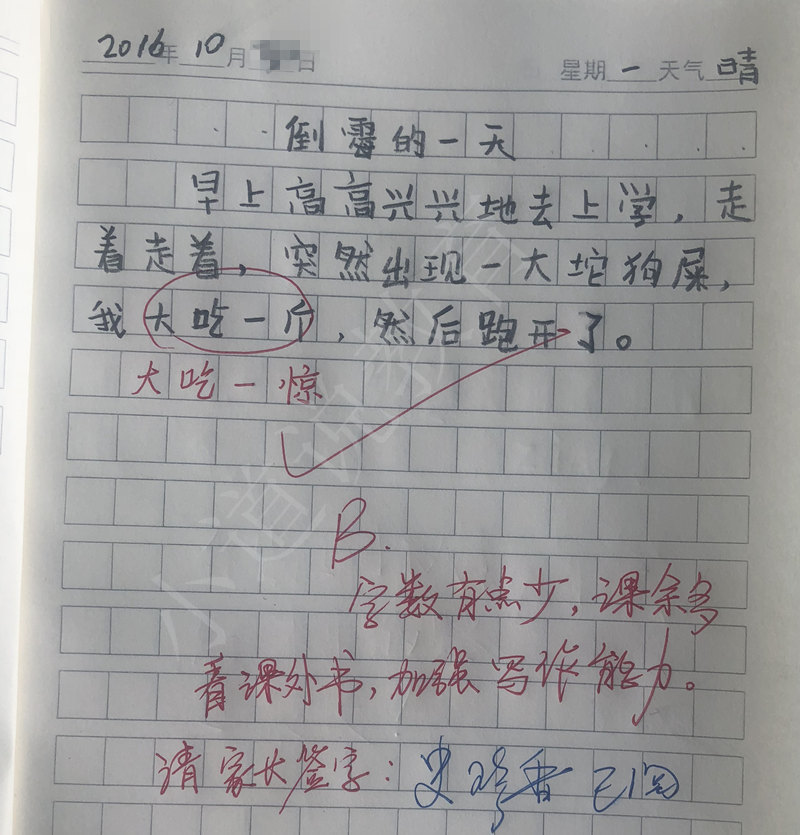 2016年10月 日 星期一 天气晴
倒霉的一天
早上高高兴兴地去上学，走
着走着，突然出现一大坨狗屎，
我大吃一斤，然后跑开了。
大吃一惊
B.
字数有点少，课余多
看课外书，加强写作能力。
请家长签字：史珍香 已阅
小道说教育